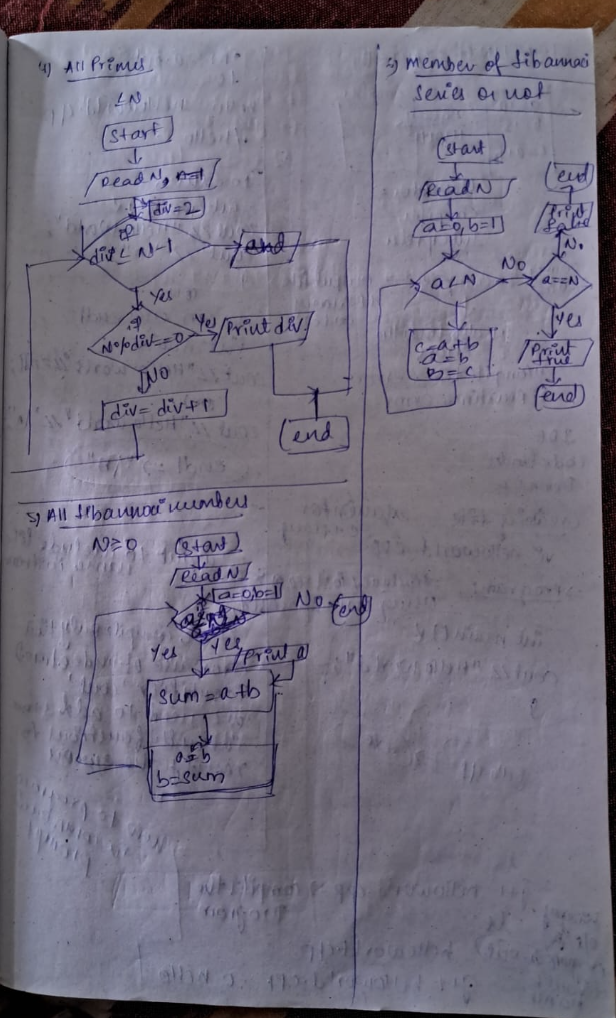 4) All Primes
≤N
Start
Read N, n=1
div=2
if
div ≤ N-1
end
Yes
if
N%div==0
Yes
Print div
NO
div=div+1
end
5) All fibannaci numbers
N≥0
Start
Read N
a=0,b=1
No
end
Yes
Yes
Print a
sum=a+b
a=b
b=sum
5) member of fibannaci
series or not
Start
Read N
a=0,b=1
a<N
No
a==N
No
Print
false
end
Yes
Print
true
end
c=a+b
a=b
B=c